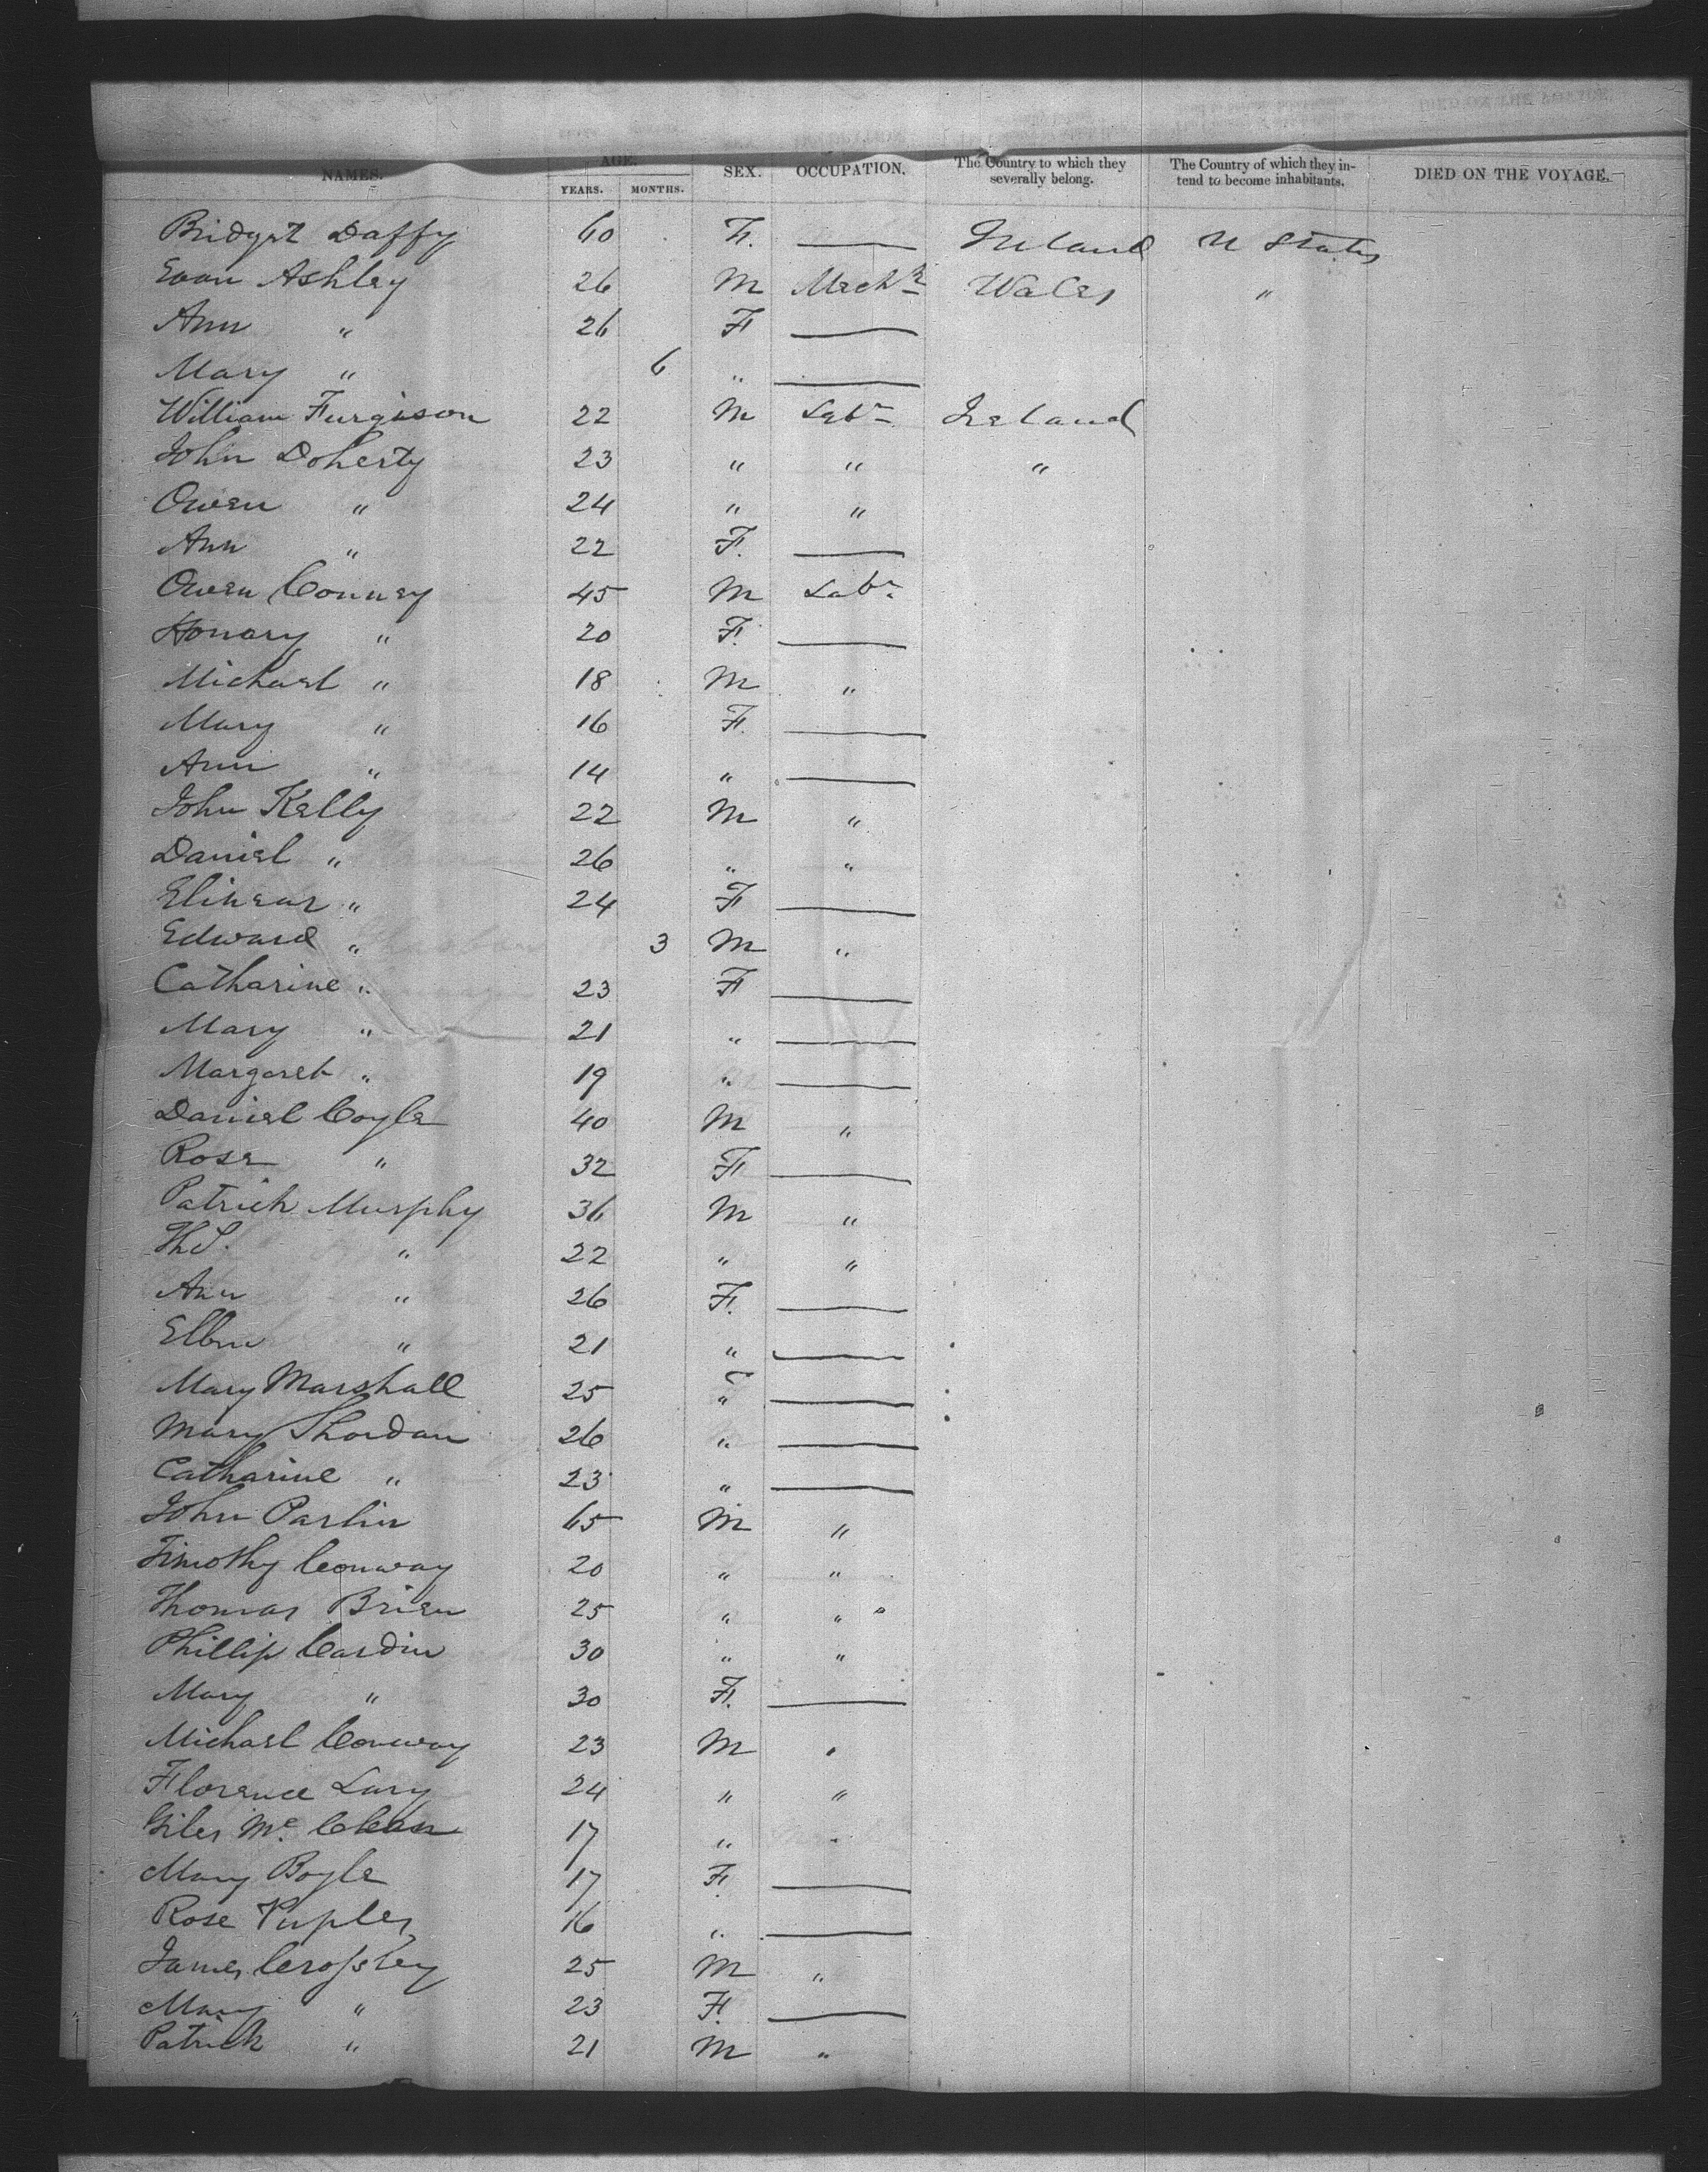 NAMES. AGE. YEARS. MONTHS. SEX. OCCUPATION. The Country to which they severally belong. The Country of which they intend to become inhabitants. DIED ON THE VOYAGE.
Bridget Daffy 60 F. — Ireland U States
Evan Ashley 26 M Mechn Wales "
Ann " 26 F —
Mary " 6 " —
William Furgison 22 M Labr Ireland
John Doherty 23 " " "
Owen " 24 " "
Ann " 22 F. —
Owen Conney 45 M Labr
Honary " 20 F. —
Michael " 18 M "
Mary " 16 F. —
Ann " 14 " —
John Kelly 22 M "
Daniel " 26 " "
Elinear " 24 F —
Edward " 3 M "
Catharine " 23 F —
Mary " 21 " —
Margaret " 19 " —
Daniel Coyle 40 M "
Rose " 32 F —
Patrick Murphy 36 M "
" 22 " "
Ann " 26 F. —
Ellen " 21 " —
Mary Marshall 25 " —
Mary 26 " —
Catharine " 23 " —
John Parlin 65 M "
Timothy Conway 20 " "
Thomas Brien 25 " "
Phillip Cardin 30 " "
Mary " 30 F. —
Michael Conway 23 M "
Florence Lary 24 " "
Giles Mc. 17 " "
Mary Boyle 17 F. —
Rose 16 " —
James Crossley 25 M "
Mary " 23 F. —
Patrick " 21 M "